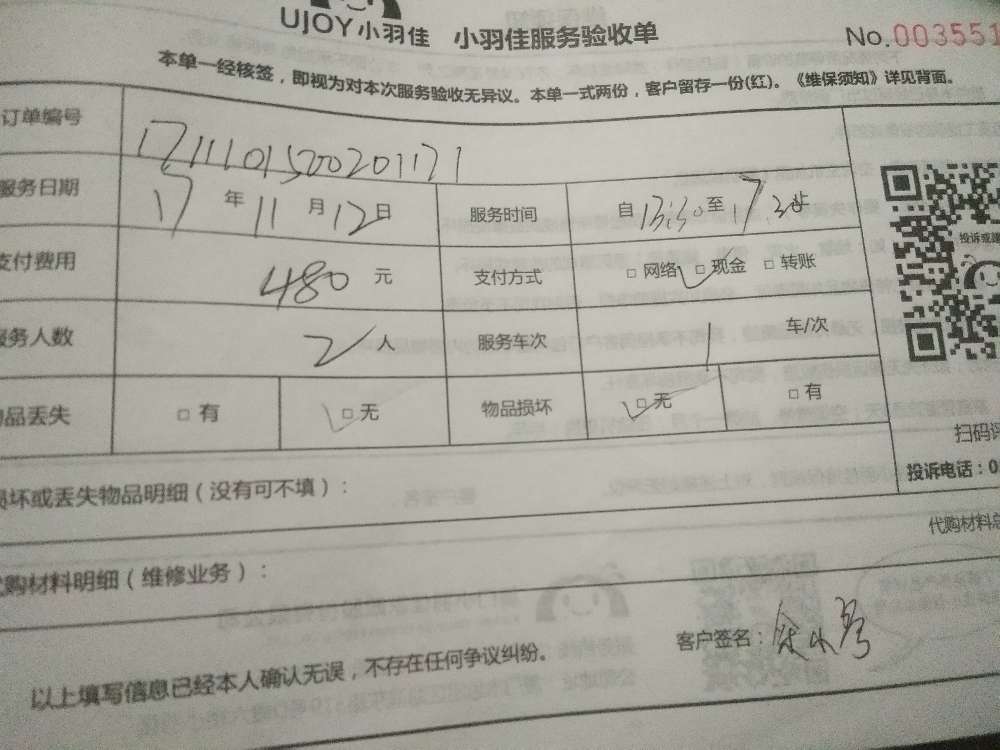 UJOY小羽佳 小羽佳服务验收单
No.003551
本单一经核签,即视为对本次服务验收无异议。本单一式两份,客户留存一份(红)。《维保须知》详见背面。
订单编号 1711101500201171
服务日期 17 年 11 月 12 日 服务时间 自 13:30 至 17:30 止
支付费用 480 元 支付方式 □ 网络 □ 现金 □ 转账
服务人数 2 人 服务车次 1 车/次
物品丢失 □ 有 □ 无 物品损坏 □ 无 □ 有
投诉或建
扫码评
投诉电话:0
损坏或丢失物品明细(没有可不填):
代购材料总
代购材料明细(维修业务):
客户签名:
以上填写信息已经本人确认无误,不存在任何争议纠纷。